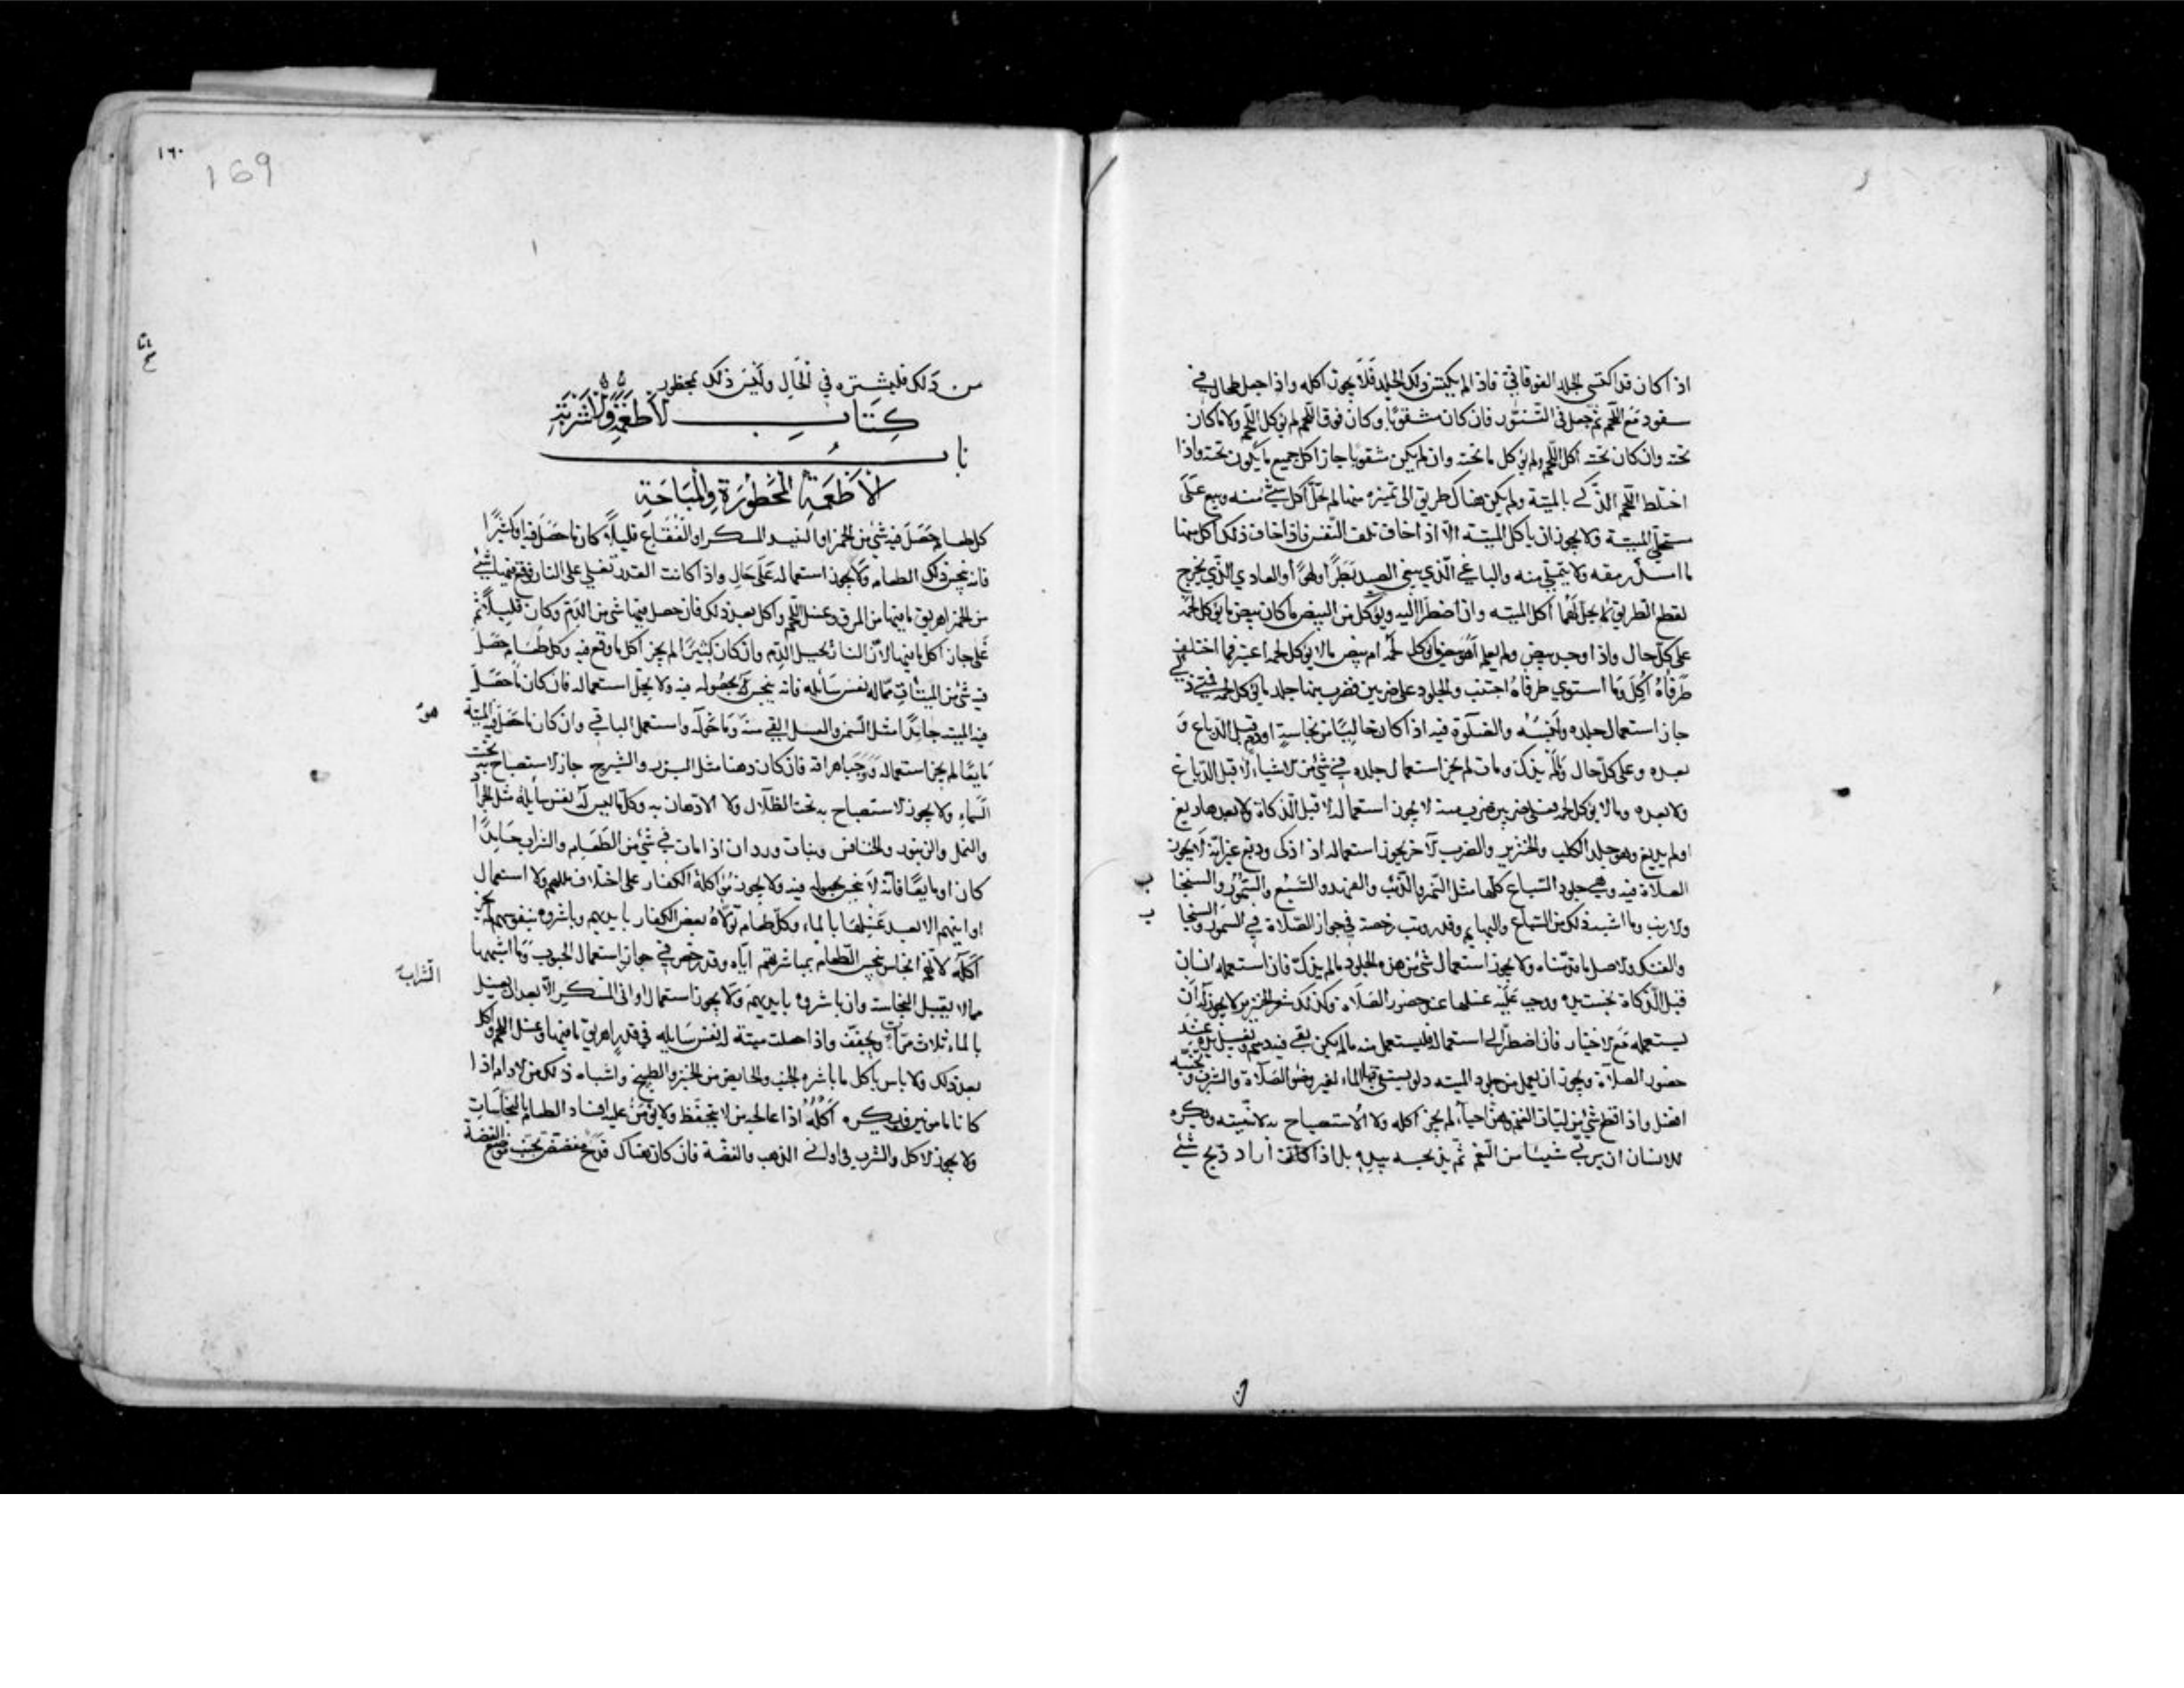 اذا كان قد اكتسى الجلد الفوقاني فاذا لم يكتس ذلك الجلد فلا يجوز اكله واذا جعل طحال في
سفود مع اللحم ثم جعل في التنور فان كان مثقوبا وكان فوق اللحم لم يؤكل اللحم ولا ما كان
تحته وان كان تحته اكل اللحم ولم يؤكل ما تحته وان لم يكن مثقوبا جاز اكل جميع ما يكون تحته واذا
اختلط اللحم الذكي بالميتة ولم يكن هناك طريق الى تميزه منها لم يحل اكل شئ منه وبيع على
مستحلي الميتة ولا يجوز ان ياكل الميتة الا اذا خاف تلف النفس فاذا خاف ذلك اكل منها
ما امسك رمقه ولا يتملى منه والباغي الذي يبغي الصيد بطرا او لهوا او العادي الذي يخرج
لقطع الطريق لم يحل لهما اكل الميتة وان اضطرا اليه ويؤكل من البيض ما كان بيض ما يؤكل لحمه
على كل حال واذا وجد بيض ولم يعلم اهو بيض ما يؤكل لحمه ام بيض ما لا يؤكل لحمه اعتبر فما اختلف
طرفاه اكل وما استوى طرفاه اجتنب والجلود على ضربين فضرب منها جلد ما يؤكل لحمه فمتى ذكي
جاز استعمال جلده ولبسه والصلوة فيه اذا كان خاليا من نجاسة او دم قبل الدباغ و
بعده وعلى كل حال وما لم يذك ومات لم يجز استعمال جلده في شئ من الاشياء لا قبل الدباغ
ولا بعده وما لا يؤكل لحمه فعلى ضربين ضرب منه لا يجوز استعماله لا قبل الذكاة ولا بعدها دبغ
او لم يدبغ وهو جلد الكلب والخنزير والضرب الآخر يجوز استعماله اذا ذكى ودبغ غير انه لا يجوز
الصلاة فيه وهي جلود السباع كلها مثل النمر والذئب والفهد والسبع والسمور والسنجا
ب
والارنب وما اشبه ذلك من السباع والبهايم وقد رويت رخصة في جواز الصلاة في السمور والسنجا
ب
والفنك والاصل ما قدمناه ولا يجوز استعمال شئ من هذه الجلود ما لم يذك فان استعمله انسان
قبل الذكاة نجست يده ووجب عليه غسلها عند حضور الصلاة وكذلك شعر الخنزير لا يجوز له ان
يستعمله مع الاختيار فان اضطر الى استعماله فليستعمل منه ما لم يكن بقي فيه دسم ويغسل يده عند
حضور الصلاة ويجوز ان يعمل من جلود الميتة دلو يستقى به الماء لغير وضوء الصلاة والشرب وتجنبه
افضل واذا قطع شئ من اليات الغنم وهن احياء لم يجز اكله ولا الاستصباح به لانه ميتة ويكره
للانسان ان يربي شيئا من الغنم ثم يذبحه بيده بل اذا كان اراد ذبح شئ
١٦٠
169
من ذلك فليشتره في الحال وليس ذلك بمحظور
كتاب الاطعمة والاشربة
باب
الاطعمة المحظورة والمباحة
كل طعام حصل فيه شئ من الخمر او النبيذ المسكر او الفقاع قليلا كان ما حصل فيه او كثيرا
فانه نجس ذلك الطعام ولا يجوز استعماله على حال واذا كانت القدر تغلي على النار فوقع فيها شئ
من الخمر اهريق ما فيها من المرق وغسل اللحم واكل بعد ذلك فان حصل فيها شئ من الدم وكان قليلا ثم
غلى جاز اكل ما فيها لان النار تحيل الدم وان كان كثيرا لم يجز اكل ما وقع فيه وكل طعام حصل
فيه شئ من الميتات مما له نفس سائله فانه ينجس بحصوله فيه ولا يحل استعماله فان كان ما حصل
فيه الميتة جامدا مثل السمن والعسل القي منه وما حوله واستعمل الباقي وان كان ما حصل فيه الميتة
مايعا لم يجز استعماله ووجب اهراقه فان كان دهنا مثل البزر والشيرج جاز الاستصباح به تحت
السماء ولا يجوز الاستصباح به تحت الظلال ولا الادهان به وكل ما ليس له نفس سايله مثل الجراد
والنمل والزنبور والخنافس وبنات وردان اذا مات في شئ من الطعام والشراب جامدا
كان او مايعا فانه لا ينجس بحصوله فيه ولا يجوز مؤاكلة الكفار على اختلاف مللهم ولا استعمال
اوانيهم الا بعد غسلها بالماء وكل طعام تولاه بعض الكفار بايديهم وباشروه بنفوسهم لم يجز
اكله لانهم انجاس ينجس الطعام بمباشرتهم اياه وقد رخص في جواز استعمال الحبوب وما اشبهها
الشراب
مما لا يقبل النجاسة وان باشروه بايديهم ولا يجوز استعمال اواني المسكر الا بعد الغسل
بالماء ثلاث مرات وتجفف واذا حصلت ميتة لها نفس سايله في قدر اهريق ما فيها وغسل اللحم واكل
بعد ذلك ولا باس باكل ما باشره الجنب والحايض من الخبز والطبيخ واشباه ذلك من الادام اذا
كانا مامونين ويكره اكله اذا عالجه من لا يتحفظ ولا يؤمن عليه افساد الطعام بالنجاسات
ولا يجوز الاكل والشرب في اواني الذهب والفضة فان كان هناك قدح مفضض تجنب موضع الفضة